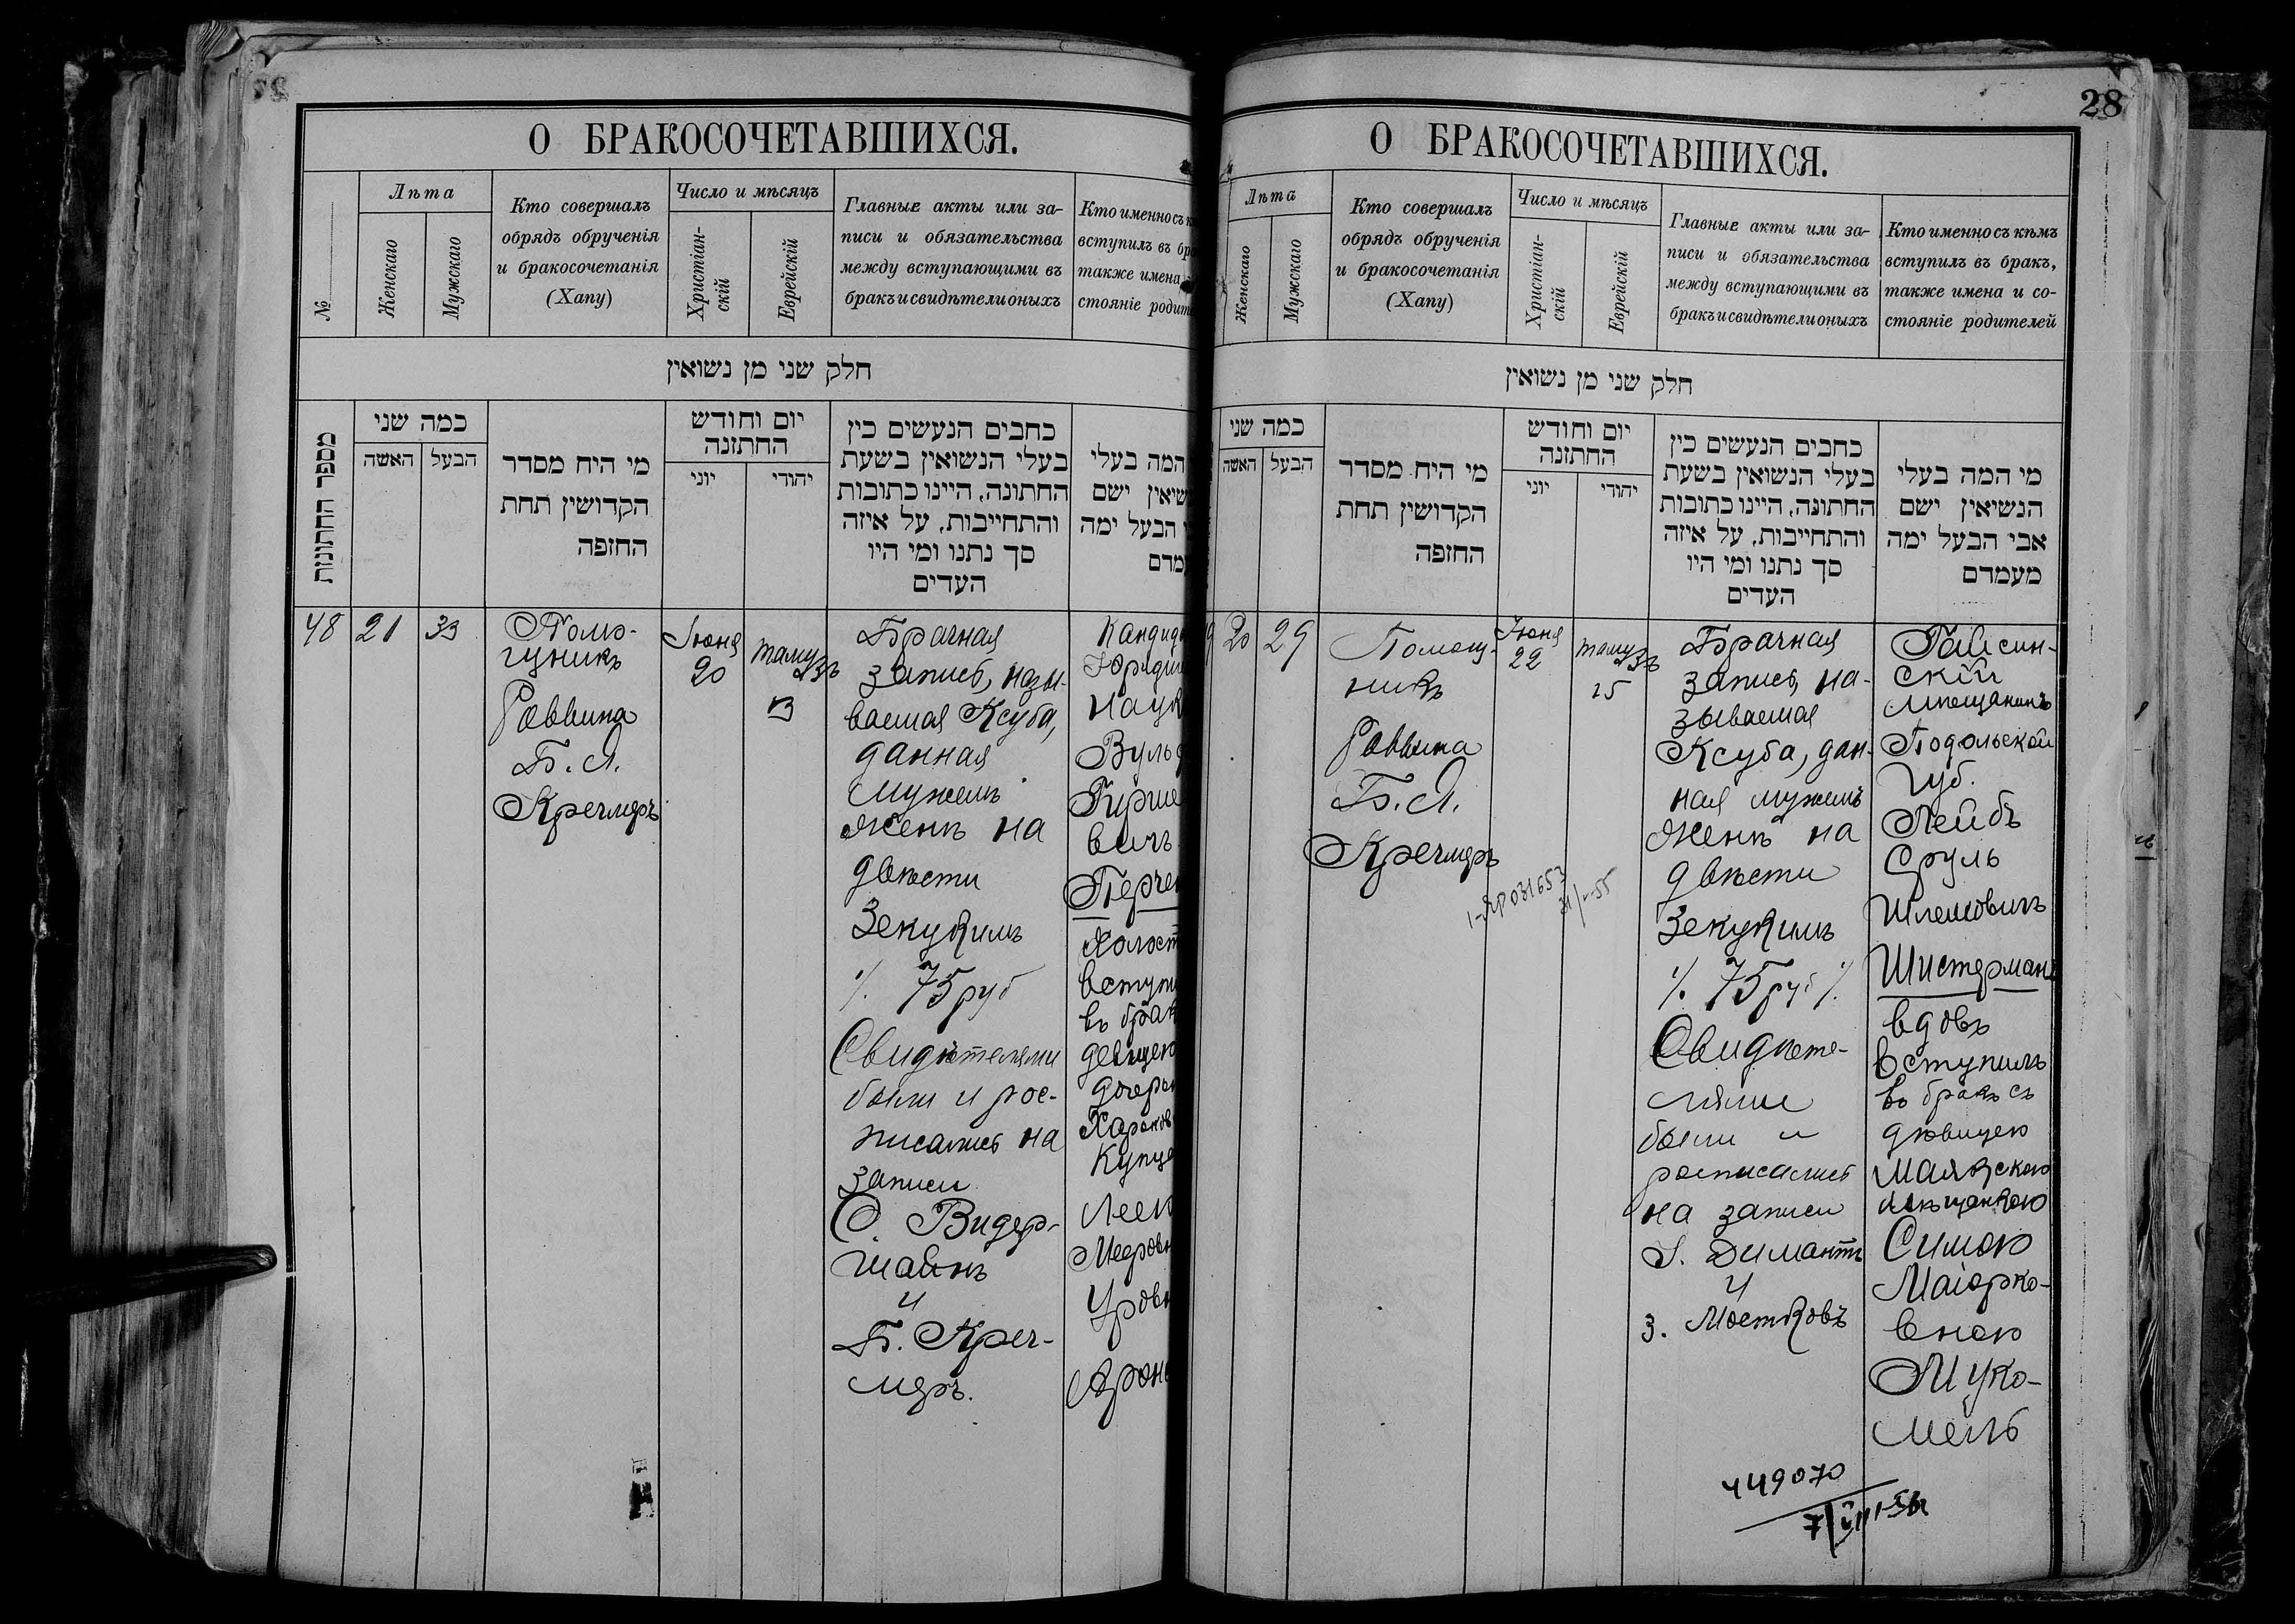 28
О БРАКОСОЧЕТАВШИХСЯ.
№
Лѣта
Женскаго
Мужскаго
Кто совершалъ
обрядъ обрученія
и бракосочетанія
(Хапу)
Число и мѣсяцъ
Христіан-
скій
Еврейскій
Главные акты или за-
писи и обязательства
между вступающими въ
бракъ и свидѣтели оныхъ
Кто именно съ к
вступилъ въ бра
также имена
стояніе родит
חלק שני מן נשואין
מספר החתונות
כמה שני
האשה
הבעל
מי היח מסדר
הקדושין תחת
החזפה
יום וחודש
החתזנה
יוני
יהודי
כחבים הנעשים כין
בעלי הנשואין בשעת
החתונה, היינו כתובות
והתחייבות, על איזה
סך נתנו ומי היו
העדים
המה בעלי
שיאין ישם
הבעל ימה
מדם
48
21
33
Помо-
щникъ
Раввина
Б. Я.
Кречмеръ
Іюня
20
Тамузъ
13
Брачная
запись, назы-
ваемая Ксуба,
данная
мужемъ
женѣ на
двѣсти
Зекукимъ
/. 75 руб
Свидѣтелями
были и рос-
писались на
записи
О. Видер-
шайнъ
и
Б. Креч-
меръ.
Кандид
Юриди
Наук
Вульф
Гирше
вичъ
Перче
Холост
вступи
въ брак
девицею
дочерь
Харьков
Купца
Леею
Мееров
Уров
Арон
О БРАКОСОЧЕТАВШИХСЯ.
Лѣта
Женскаго
Мужскаго
Кто совершалъ
обрядъ обрученія
и бракосочетанія
(Хапу)
Число и мѣсяцъ
Христіан-
скій
Еврейскій
Главные акты или за-
писи и обязательства
между вступающими въ
бракъ и свидѣтели оныхъ
Кто именно съ кѣмъ
вступилъ въ бракъ,
также имена и со-
стояніе родителей
חלק שני מן נשואין
כמה שני
האשה
הבעל
מי היח מסדר
הקדושין תחת
החזפה
יום וחודש
החתזנה
יוני
יהודי
כחבים הנעשים כין
בעלי הנשואין בשעת
החתונה, היינו כתובות
והתחייבות, על איזה
סך נתנו ומי היו
העדים
מי המה בעלי
הנשיאין ישם
אבי הבעל ימה
מעמדם
20
29
Помощ-
никъ
Раввина
Б. Я.
Кречмеръ
Іюня
22
Тамузъ
15
Брачная
запись, на-
зываемая
Ксуба, дан-
ная мужемъ
женѣ на
двѣсти
Зекукимъ
/. 75 руб /.
Свидѣте-
лями
были и
росписались
на записи
І. Димантъ
и
З. Мостковъ
Гайсин-
скій
мѣщанинъ
Подольской
Губ.
Лейбъ
Сруль
Шлемовичъ
Шистерманъ
вдовъ
вступилъ
въ бракъ съ
дѣвицею
Маякскою
мѣщанкою
Симою
Маіорко-
вною
Муко-
мель
031653
449070